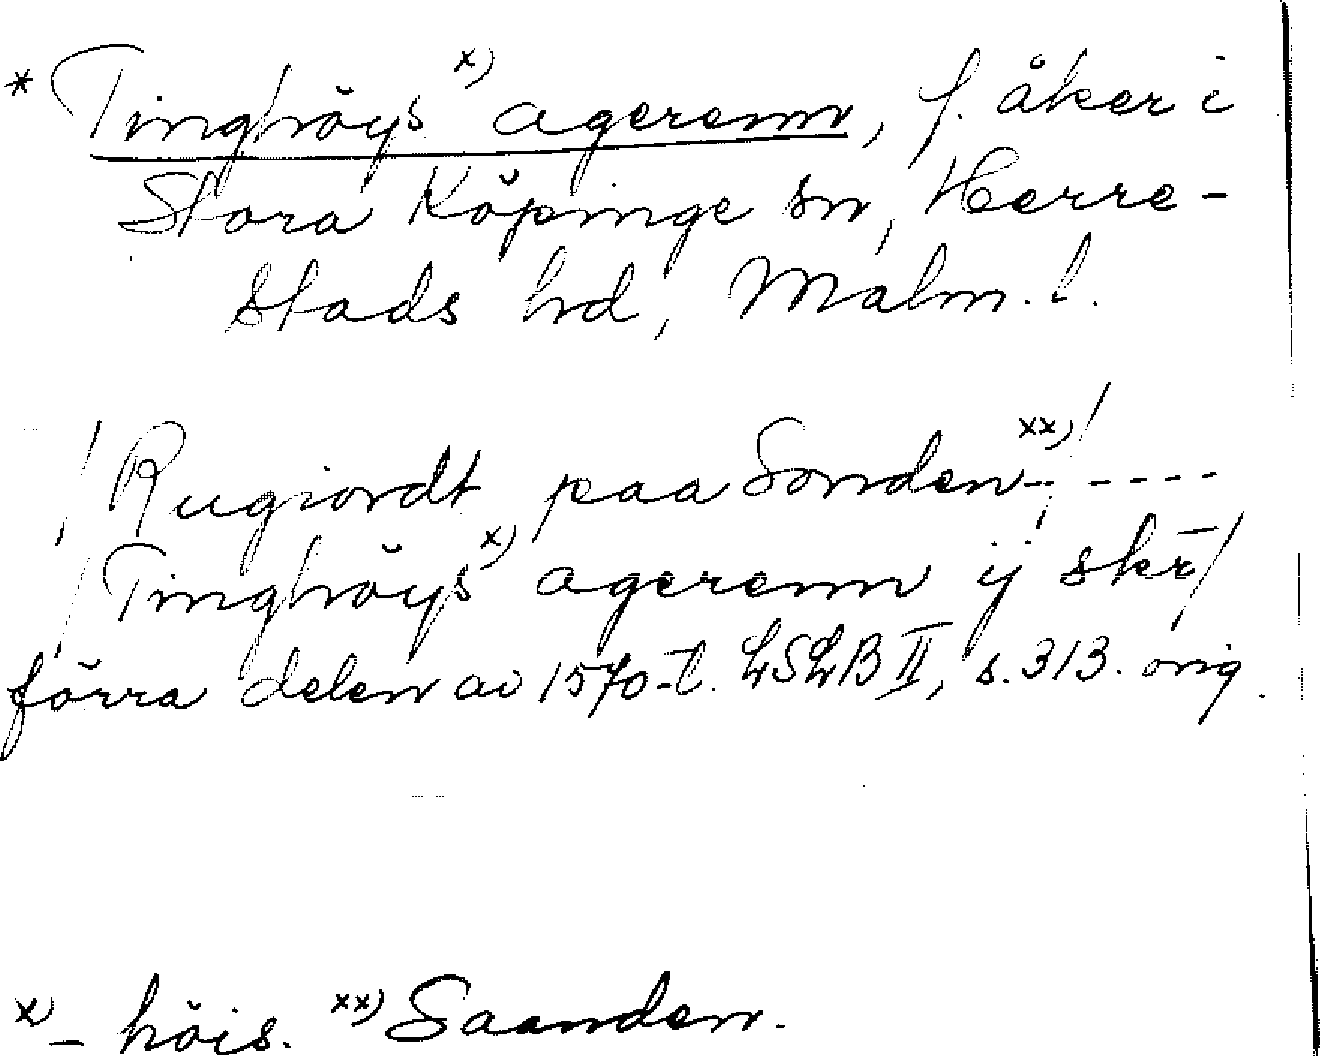 * Tinghöys x) agerenn, f. åker i
Stora Köpinge sn, Herre-
stads hd, Malm. l.
/Rugiordt paa Sonden xx)/ ----
/Tinghöys x) agerenn ij skr̄/
förra delen av 1570-t. LSLB II, s. 313. orig.
x) - höis. xx) Saanden.